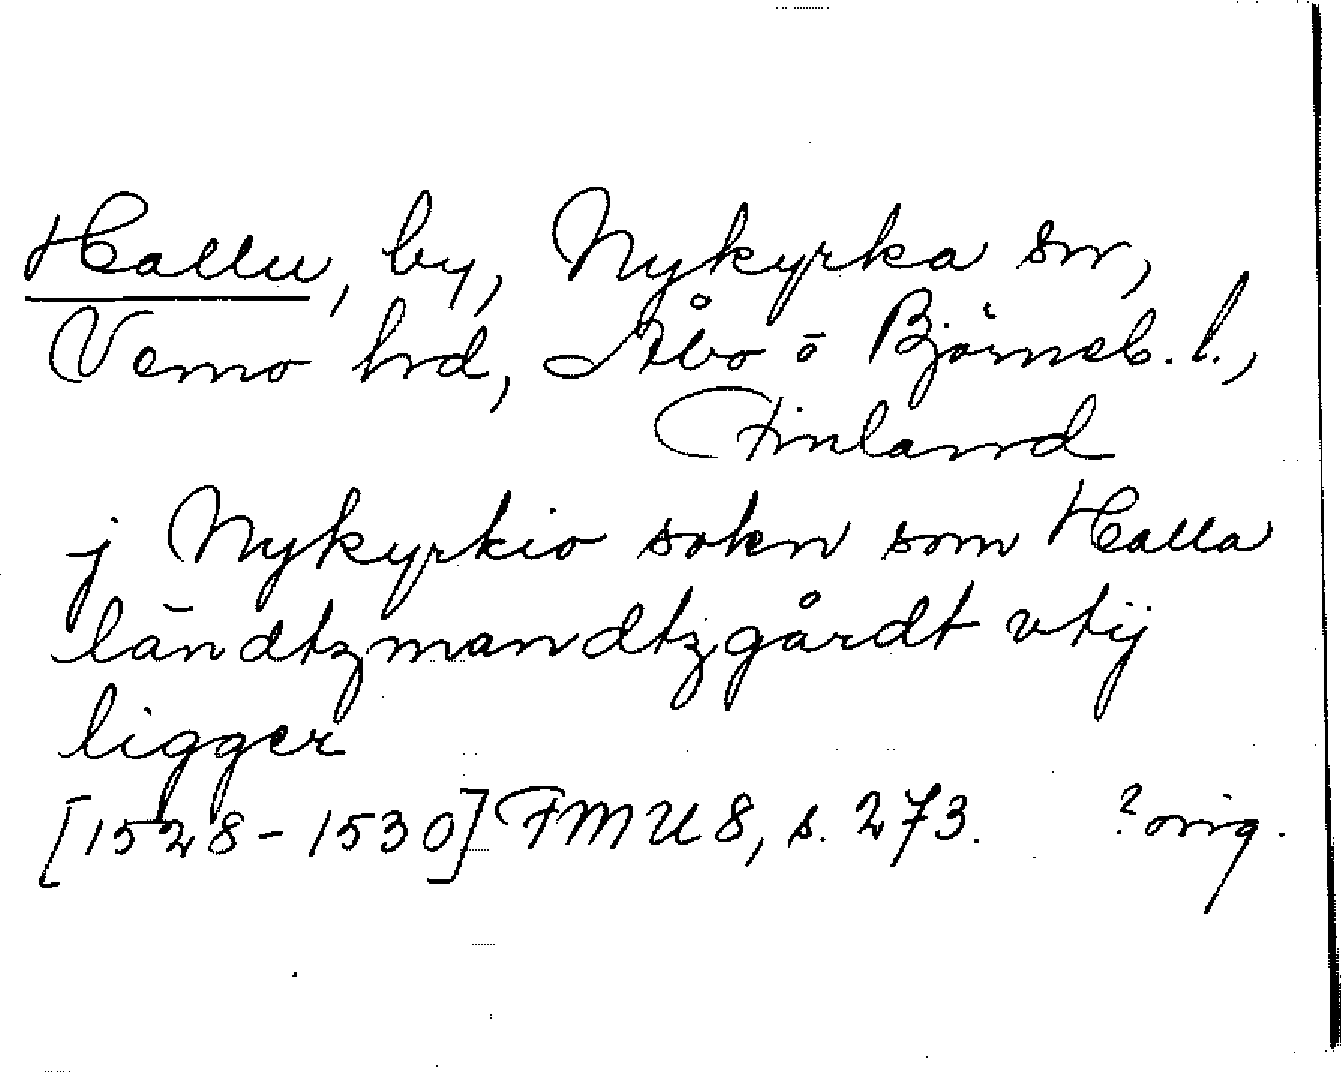 Hallu, by, Nykyrka sn,
Vemo hrd, Åbo o Björneb. l.,
Finland
j Nykyrkio sokn som Halla
ländtzmandtzgårdt vtij
ligger
[1528-1530] FMU 8, s. 273. ? orig.